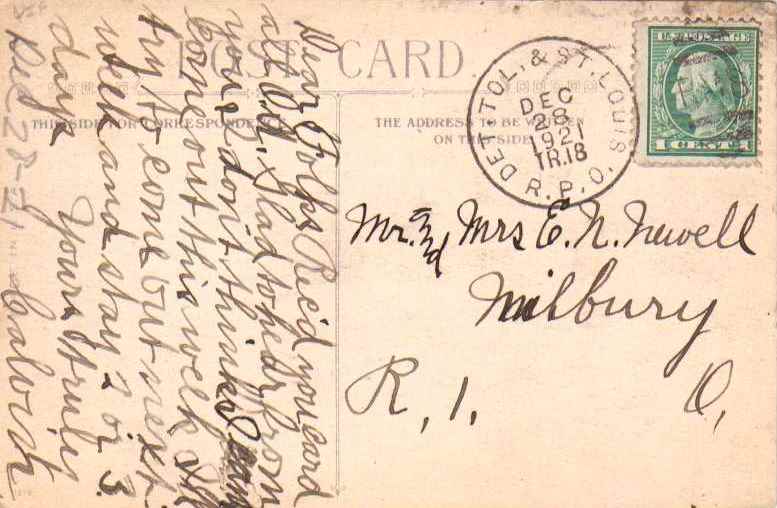 POST CARD.
THIS SIDE FOR CORRESPONDENCE
THE ADDRESS TO BE WRITTEN
ON THIS SIDE
DET. TOL. & ST. LOUIS
R.P.O.
DEC
28
1921
TR.18
U.S. POSTAGE
1 CENT 1
Mr. and Mrs E. N. Newell
Milbury
R, 1, O,
Dear Folks Rec'd you card
all O.K. Glad to hear from
you, don't think I can
come out this week I'll
try & come out next
week and stay 2 or 3
days. Yours truly
Dec 28-21 Calvin